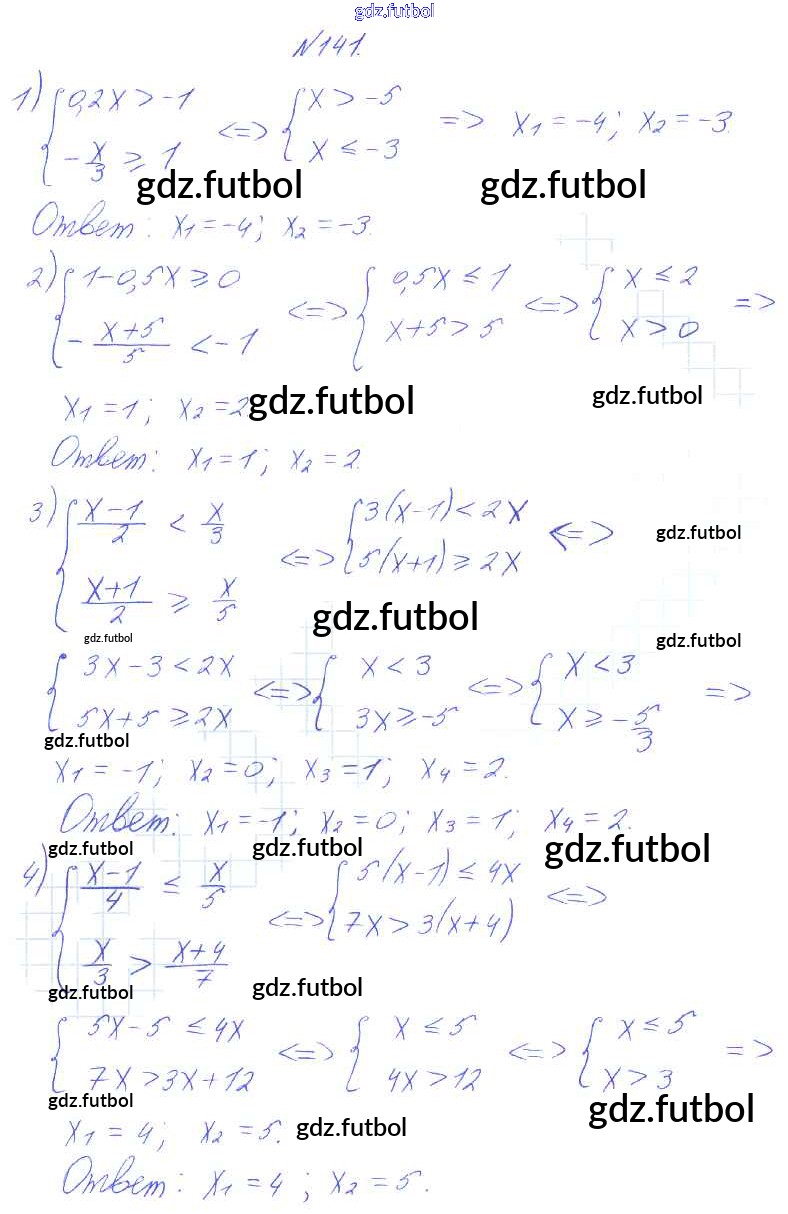 gdz.futbol
№141.
1) { 0,2x > -1 <=> { x > -5 => x₁ = -4; x₂ = -3.
-x/3 ≥ 1 x ≤ -3
gdz.futbol gdz.futbol
Ответ: x₁ = -4; x₂ = -3.
2) { 1-0,5x ≥ 0 <=> { 0,5x ≤ 1 <=> { x ≤ 2 =>
- (x+5)/5 < -1 x+5 > 5 x > 0
x₁ = 1; x₂ = 2 gdz.futbol gdz.futbol
Ответ: x₁ = 1; x₂ = 2.
3) { (x-1)/2 < x/3 <=> { 3(x-1) < 2x <=> gdz.futbol
(x+1)/2 ≥ x/5 5(x+1) ≥ 2x
gdz.futbol gdz.futbol gdz.futbol
{ 3x-3 < 2x <=> { x < 3 <=> { x < 3 =>
5x+5 ≥ 2x 3x ≥ -5 x ≥ -5/3
gdz.futbol
x₁ = -1; x₂ = 0; x₃ = 1; x₄ = 2.
Ответ: x₁ = -1; x₂ = 0; x₃ = 1; x₄ = 2.
gdz.futbol gdz.futbol gdz.futbol
4) { (x-1)/4 ≤ x/5 <=> { 5(x-1) ≤ 4x <=>
x/3 > (x+4)/7 7x > 3(x+4)
gdz.futbol gdz.futbol
{ 5x-5 ≤ 4x <=> { x ≤ 5 <=> { x ≤ 5 =>
7x > 3x+12 4x > 12 x > 3
gdz.futbol gdz.futbol
x₁ = 4; x₂ = 5. gdz.futbol
Ответ: x₁ = 4; x₂ = 5.